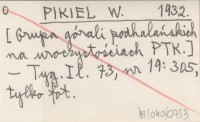 PIKIEL W. 1932.
[Grupa górali podhalańskich
na uroczystościach PTK.]
— Tyg. Il. 73, nr 19: 305,
tylko fot.